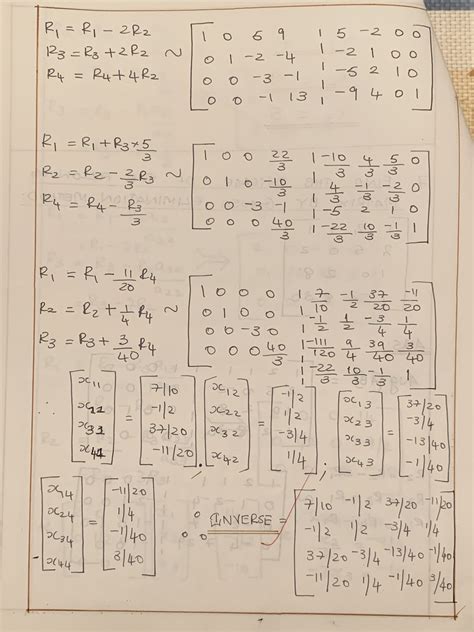 R₁ = R₁ − 2R₂
R₃ = R₃ + 2R₂ ~
R₄ = R₄ + 4R₂
[ 1 0 5 9 | 5 −2 0 0
0 1 −2 −4 | −2 1 0 0
0 0 −3 −1 | −5 2 1 0
0 0 −1 13 | −9 4 0 1 ]
R₁ = R₁ + R₃ × 5/3
R₂ = R₂ − 2/3 R₃ ~
R₄ = R₄ − R₃/3
[ 1 0 0 22/3 | −10/3 4/3 5/3 0
0 1 0 −10/3 | 4/3 −1/3 −2/3 0
0 0 −3 −1 | −5 2 1 0
0 0 0 40/3 | −22/3 10/3 −1/3 1 ]
R₁ = R₁ − 11/20 R₄
R₂ = R₂ + 1/4 R₄ ~
R₃ = R₃ + 3/40 R₄
[ 1 0 0 0 | 7/10 −1/2 37/20 −11/20
0 1 0 0 | −1/2 1/2 −3/4 1/4
0 0 −3 0 | −111/120 9/4 39/40 3/40
0 0 0 40/3 | −22/3 10/3 −1/3 1 ]
∴ [ x₁₁ x₂₁ x₃₁ x₄₁ ] = [ 7/10 −1/2 37/20 −11/20 ],
[ x₁₂ x₂₂ x₃₂ x₄₂ ] = [ −1/2 1/2 −3/4 1/4 ],
[ x₁₃ x₂₃ x₃₃ x₄₃ ] = [ 37/20 −3/4 −13/40 −1/40 ]
[ x₁₄ x₂₄ x₃₄ x₄₄ ] = [ −11/20 1/4 −1/40 3/40 ]
∴ INVERSE =
[ 7/10 −1/2 37/20 −11/20
−1/2 1/2 −3/4 1/4
37/20 −3/4 −13/40 −1/40
−11/20 1/4 −1/40 3/40 ]